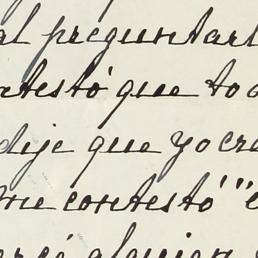 al preguntarl
atestó que to
dije que yo cre
me contestó "
alguien